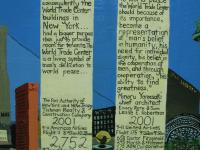 consequently the
World Trade Center
buildings in
New York...
had a bigger purpose
than just to provide
room for tenants. The
World Trade Center
is a living symbol of
man's dedication to
world peace...
The Port Authority of
New York and New Jersey
Tishman Realty &
Construction
2001
American Airlines
Flight 11
2,752
the World Trade Center
should because of
its importance,
become a
representation
of man's belief
in humanity, his
need for individual
dignity, his belief in
the cooperation of
men, and through
cooperation, his
ability to find
greatness."
Minoru Yamasaki
chief architect
Emery Roth & Sons
Leslie E. Robertson
2001
United Airlines
Flight 175